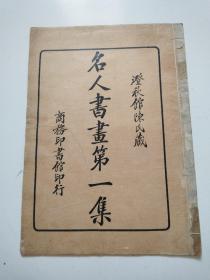 澄秋館陳氏藏
名人書畫第一集
商務印書館印行